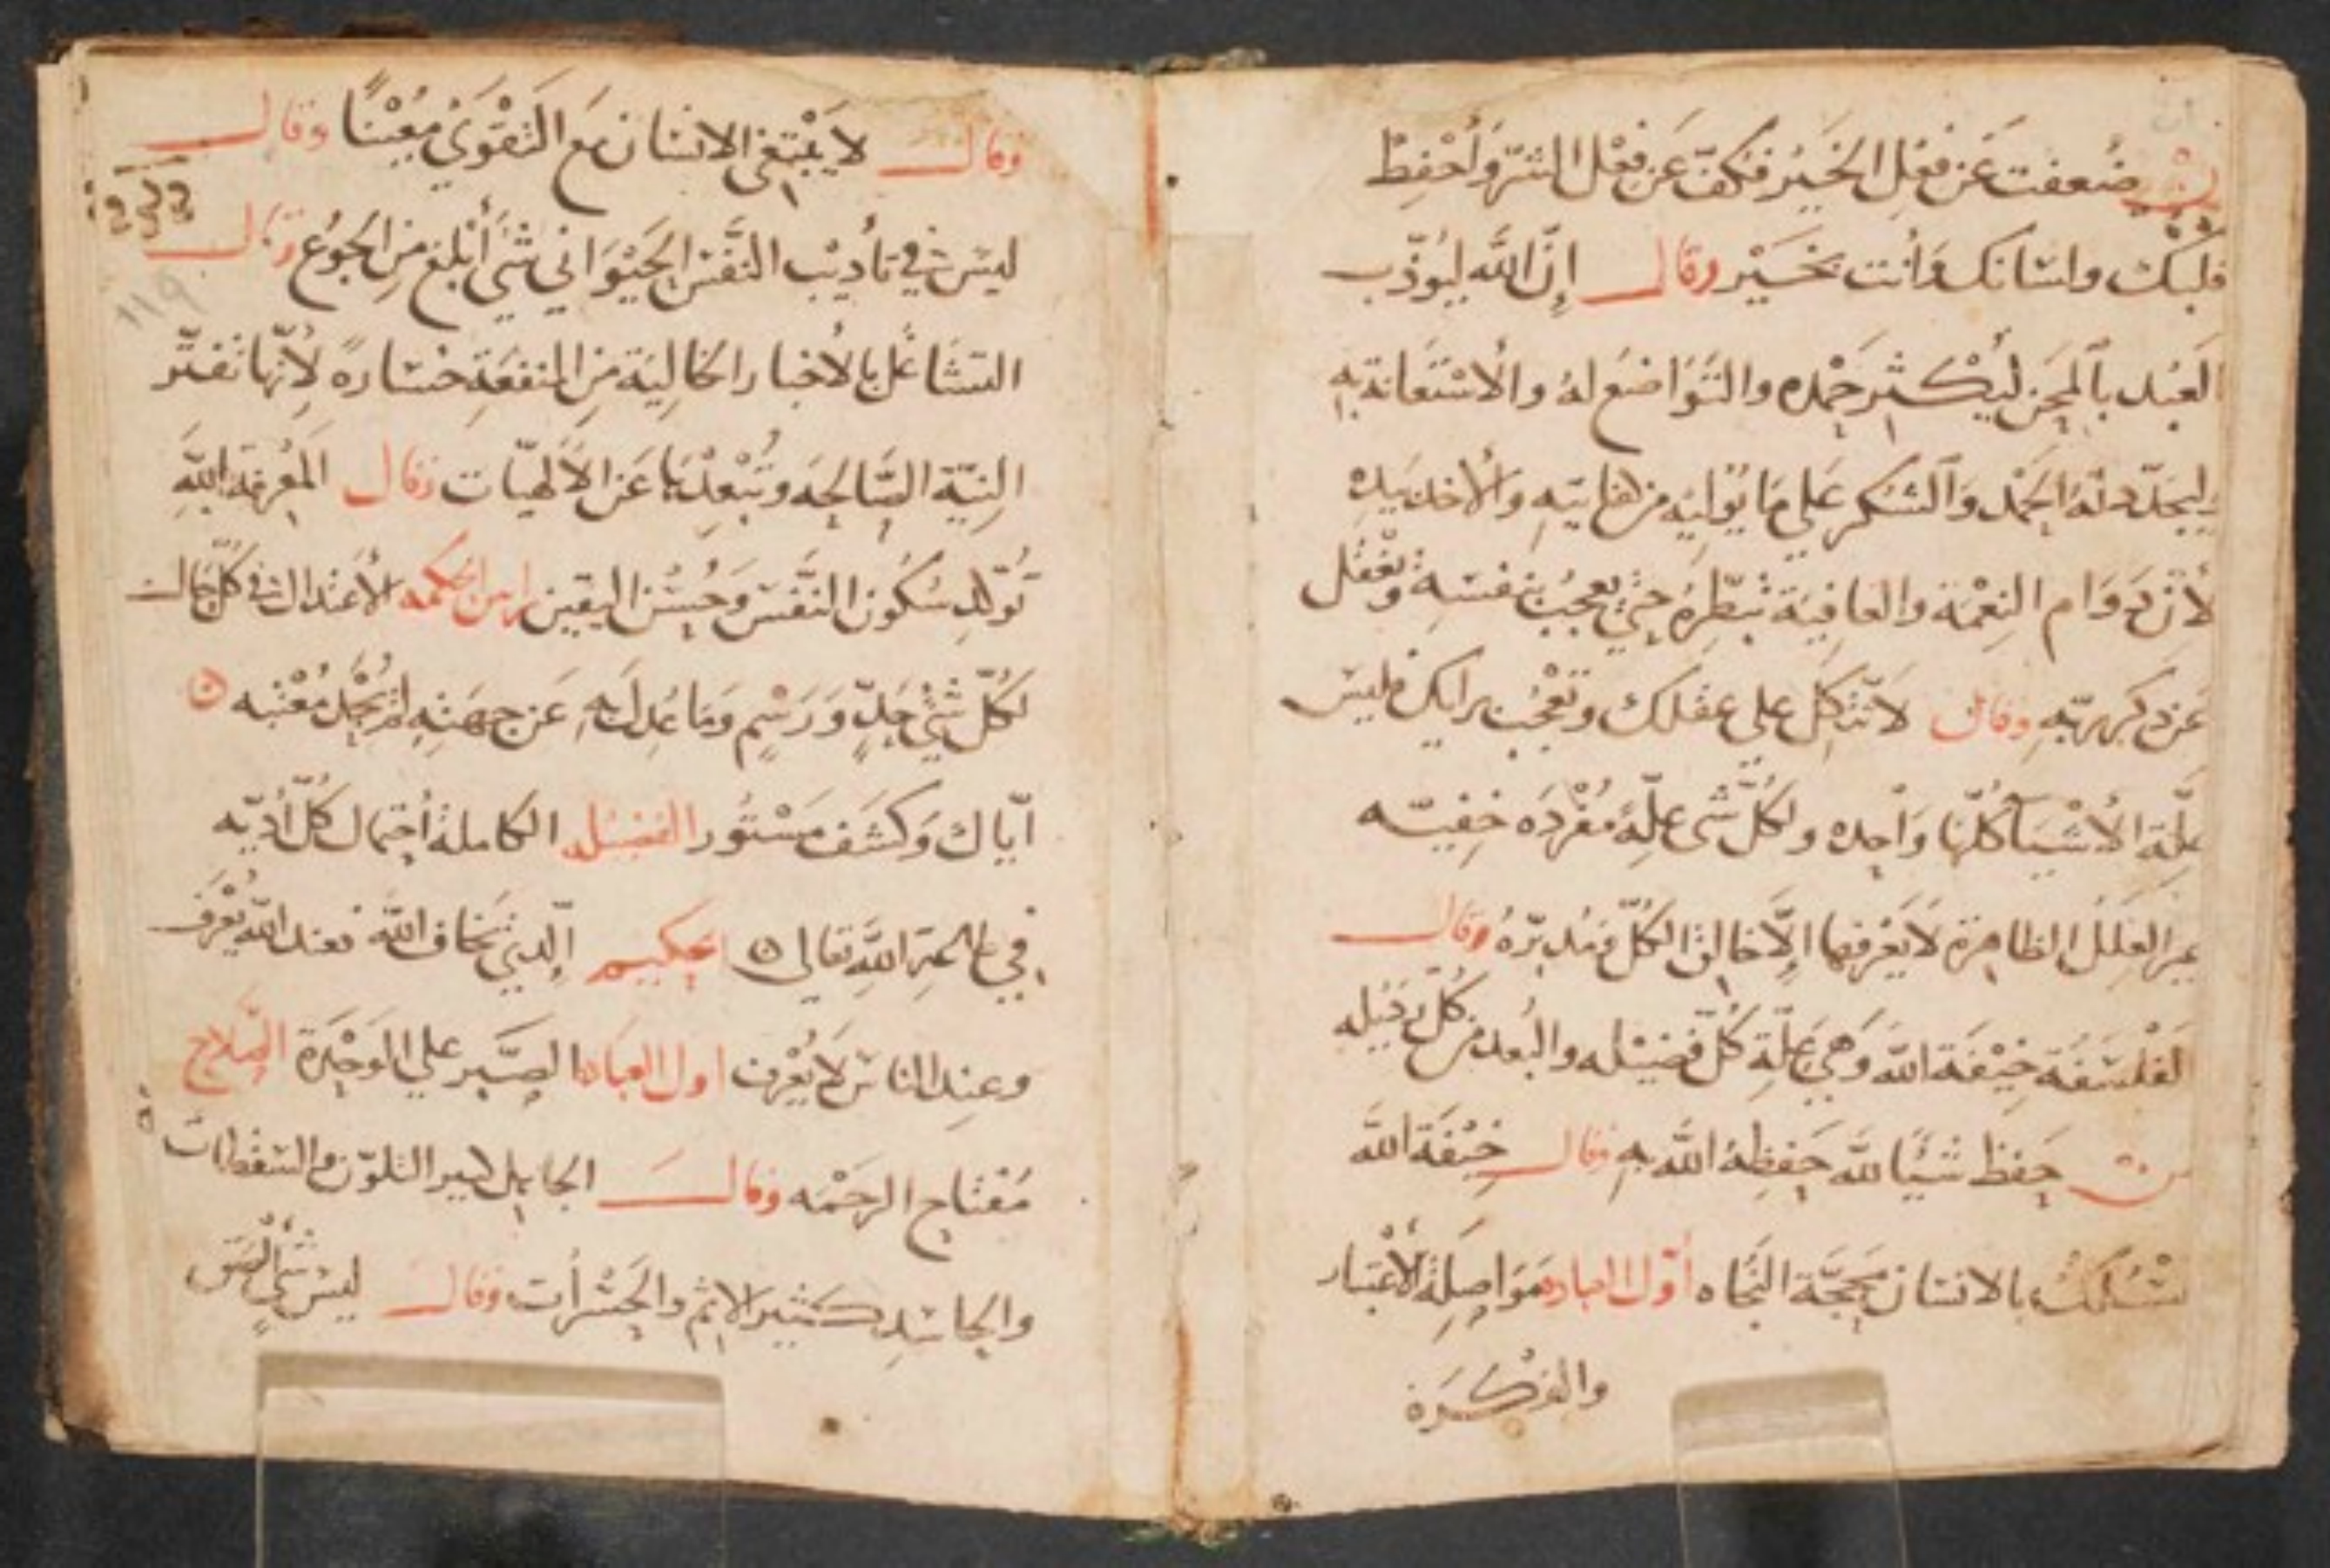 ضعفت عَن فعْلِ الخَيْر فكفّ عَن فعْل الشرّ وَأحْفِظْ
قلبَك ولسَانك وَأنت بخَيْر وقال إِنّ اللَّه ليُؤدّب
العَبْد بالمِحَن ليُكثِر حَمْده والتَوَاضعَ لهُ والاسْتعَانة بهِ
الحَمْد وَالشكر عَلي مَا يُوْليْهِ مِن وَالأخذ بيَدِهِ
لأنّ دَوَام النِعْمَة والعَافِيَة تُبَطّرِهُ حَتي يعجبُ بنفسَه وَيغْفُل
عَن ذكر ربّهِ وقال لا تتكل علي عقلك وتعْجُب برايك فليسَ
علّة الأشْيَآ كُلّها وَاحِده ولكُلّ شي علّة مُفْرَدَه خَفِيّه
العِلَلُ الظاهِرة لا يَعْرفها الاَّ خالق الكُلّ ومُدبّرهُ وقال
الفلسَفَة خِيْفَة اللَّه وَهِي علّة كُلّ فضيْله والبُعد من كُلّ
حَفِظَ شَيْأً للَّه حَفِظهُ اللَّه بهِ وقال خيْفَة اللَّه
تسْلكُ بالانسَان مَحَجَّة النَّجَاه أوّل العباده مَوَاصِلَة الأعْتبَار
والفكرَة
وقال لا يَبْتغى الانسَان مَع التَقْوَيُ مُعِيْنًا وقال
ليسَ في تأديْب النفسَ الحَيْوَاني شَي أبْلغ مِن الجَوُع وقال
التشَاغل بالأخبار الخالِيَة مِن المنفعَةِ خسَارهً لأِنّها تُفتّر
النِيّة الصَّالحِهَ وتُبْعِدْهَا عَن الألهيّات وقال المعْرِفة باللَّهِ
تُوَلّد سُكُون النَّفسَ وَحُسْن اليَقين راس الحكمه الأعتدال في كُلّ حَال
لكُلّ شَيْ حَدٍّ وَرَسْمٍ وَمَا عُدِلَ بهِ عَن جهَتِهِ لمْ يُحْمَد مُغبّه
ايّاك وَكشَف مَسْتُور الفضيله الكاملة أحتمال كُلّ أذيّه
في طاعة اللَّهِ تعَالى الحكيم الّذي يَخاف اللَّه فعند اللَّه يُعْرَف
وعِند الناسَ لا يُعْرف اول العباده الصَبر علي الوَحْدَة الصَلاح
مُفتاح الرحَمْه وقال الجَاهِل كثير التلوّن والسَقطات
والحَاسَد كثير الاثم والحَسْرات وقال ليسَ شَي ألصَق
119